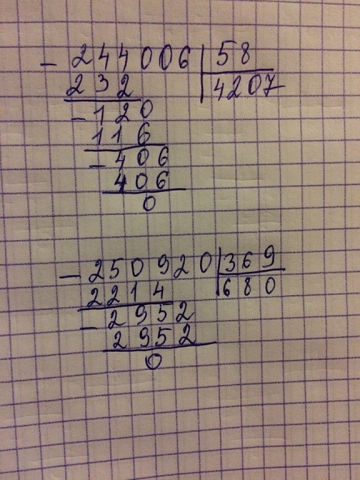 - 244006 | 58
232 | 4207
- 120
116
- 406
406
0
- 250920 | 369
2214 | 680
- 2952
2952
0